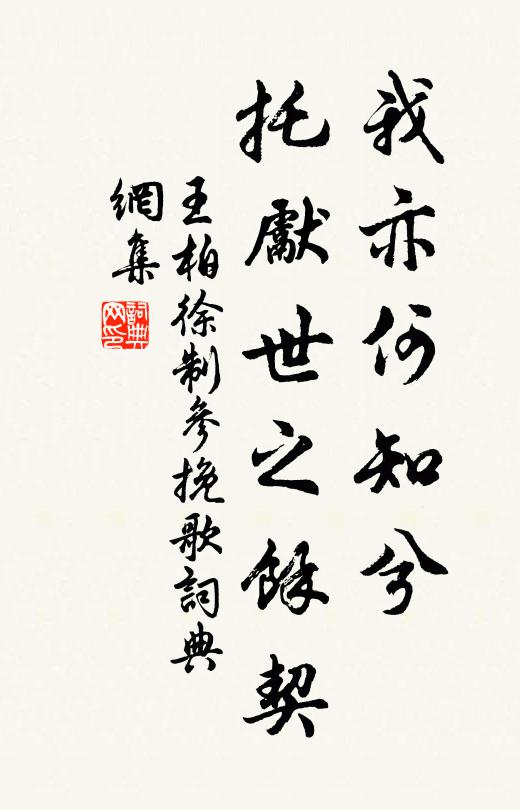 我亦何知兮
托獻世之餘契
王柏徐制參挽歌詞典
網集
詞典
网印